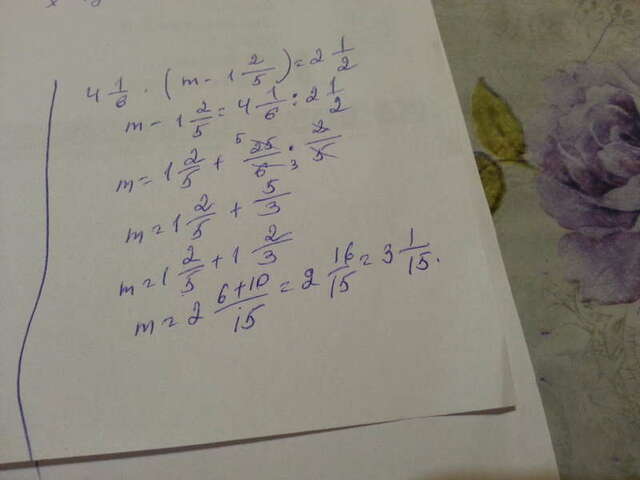 4 1/6 · (m - 1 2/5) = 2 1/2
m - 1 2/5 = 4 1/6 : 2 1/2
m = 1 2/5 + 5 25/6 3 · 2/5
m = 1 2/5 + 5/3
m = 1 2/5 + 1 2/3
m = 2 6+10/15 = 2 16/15 = 3 1/15.